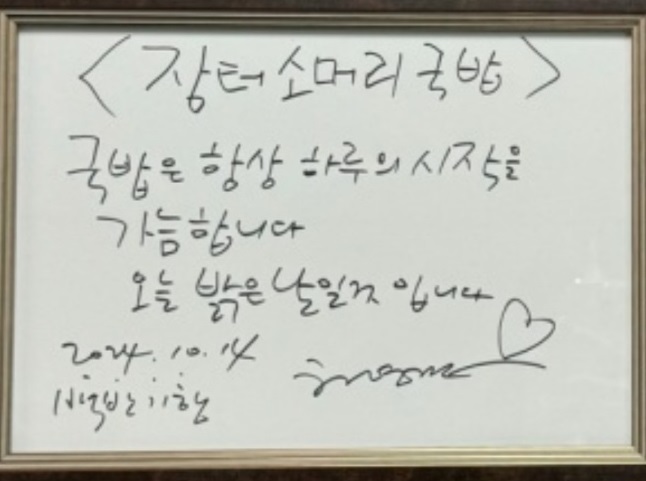 <장터소머리국밥>
국밥은 항상 하루의 시작을
가늠합니다
오늘 밝은 날일것 입니다
2024.10.14